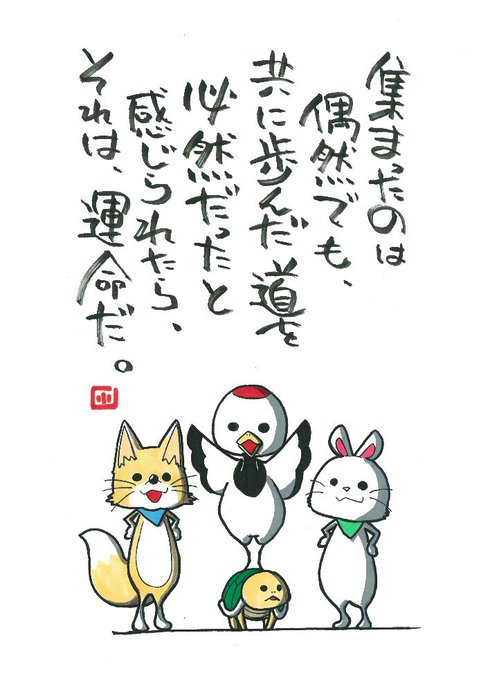 集まったのは
偶然でも、
共に歩んだ道を
必然だったと
感じられたら、
それは、運命だ。